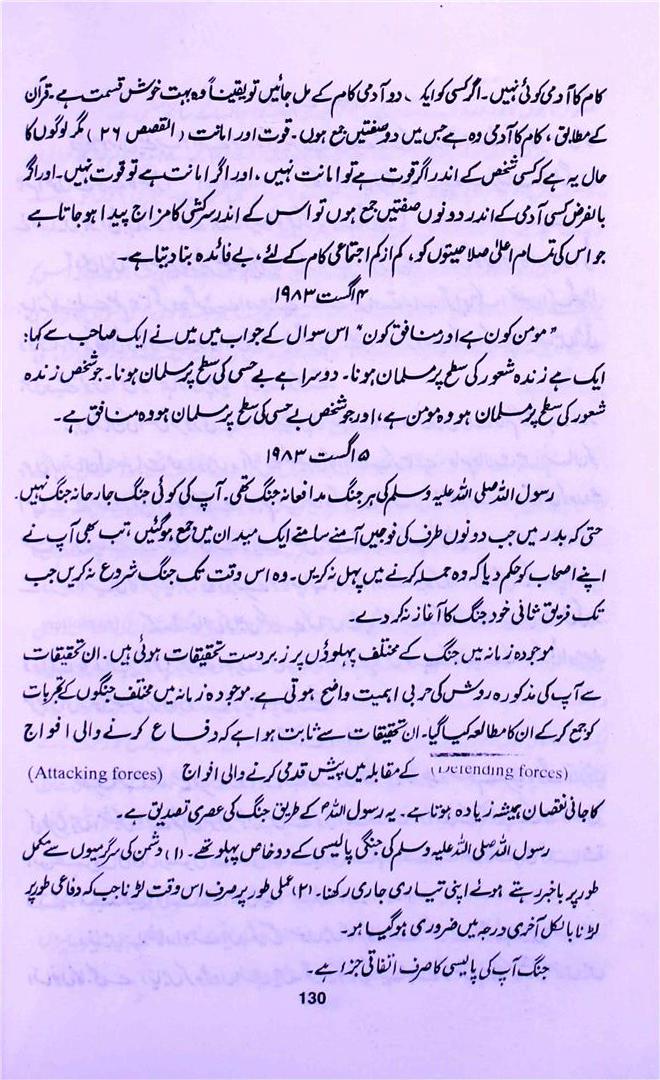 کام کا آدمی کوئی نہیں۔ اگر کسی کو ایک، دو آدمی کام کے مل جائیں تو یقیناً وہ بہت خوش قسمت ہے۔ قرآن
کے مطابق، کام کا آدمی وہ ہے جس میں دو صفتیں جمع ہوں۔ قوت اور امانت (القصص ۲۶) مگر لوگوں کا
حال یہ ہے کہ کسی شخص کے اندر اگر قوت ہے تو امانت نہیں، اور اگر امانت ہے تو قوت نہیں۔ اور اگر
بالفرض کسی آدمی کے اندر دونوں صفتیں جمع ہوں تو اس کے اندر سرکشی کا مزاج پیدا ہو جاتا ہے
جو اس کی تمام اعلیٰ صلاحیتوں کو، کم از کم اجتماعی کام کے لئے، بے فائدہ بنا دیتا ہے۔
۴ اگست ۱۹۸۳
"مومن کون ہے اور منافق کون" اس سوال کے جواب میں میں نے ایک صاحب سے کہا:
ایک ہے زندہ شعور کی سطح پر مسلمان ہونا۔ دوسرا ہے بے حسی کی سطح پر مسلمان ہونا۔ جو شخص زندہ
شعور کی سطح پر مسلمان ہو وہ مومن ہے، اور جو شخص بے حسی کی سطح پر مسلمان ہو وہ منافق ہے۔
۵ اگست ۱۹۸۳
رسول اللہ صلی اللہ علیہ وسلم کی ہر جنگ مدافعانہ جنگ تھی۔ آپ کی کوئی جنگ جارحانہ جنگ نہیں۔
حتی کہ بدر میں جب دونوں طرف کی فوجیں آمنے سامنے ایک میدان میں جمع ہوگئیں، تب بھی آپ نے
اپنے اصحاب کو حکم دیا کہ وہ حملہ کرنے میں پہل نہ کریں۔ وہ اس وقت تک جنگ شروع نہ کریں جب
تک فریق ثانی خود جنگ کا آغاز نہ کر دے۔
موجودہ زمانہ میں جنگ کے مختلف پہلوؤں پر زبردست تحقیقات ہوئی ہیں۔ ان تحقیقات
سے آپ کی مذکورہ روش کی حربی اہمیت واضح ہوتی ہے۔ موجودہ زمانہ میں مختلف جنگوں کے تجربات
کو جمع کر کے ان کا مطالعہ کیا گیا۔ ان تحقیقات سے ثابت ہوا ہے کہ دفاع کرنے والی افواج
(Defending forces) کے مقابلہ میں پیش قدمی کرنے والی افواج (Attacking forces)
کا جانی نقصان ہمیشہ زیادہ ہوتا ہے۔ یہ رسول اللہؐ کے طریق جنگ کی عصری تصدیق ہے۔
رسول اللہ صلی اللہ علیہ وسلم کی جنگی پالیسی کے دو خاص پہلو تھے۔ (۱) دشمن کی سرگرمیوں سے مکمل
طور پر باخبر رہتے ہوئے اپنی تیاری جاری رکھنا۔ (۲) عملی طور پر صرف اس وقت لڑنا جب کہ دفاعی طور پر
لڑنا بالکل آخری درجہ میں ضروری ہو گیا ہو۔
جنگ آپ کی پالیسی کا صرف اتفاقی جزء ہے۔
130